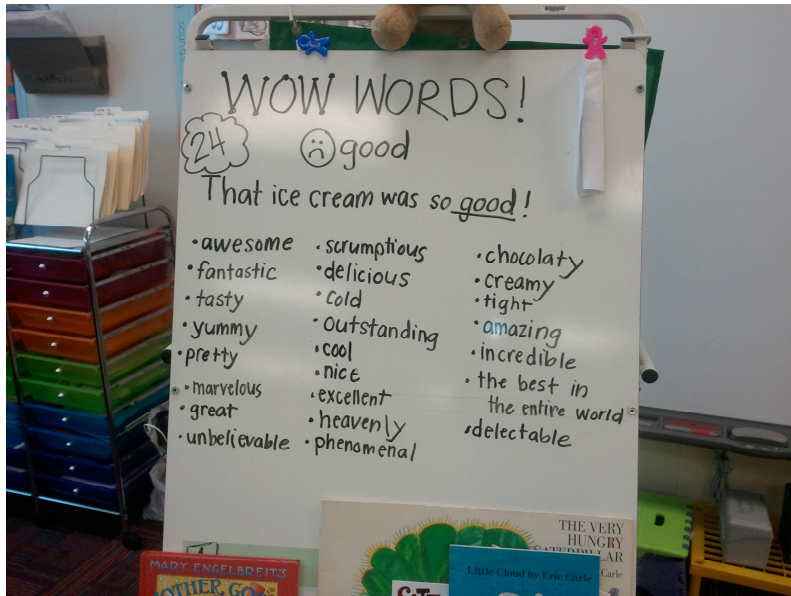 WOW WORDS!
24
good
That ice cream was so good!
• awesome
• fantastic
• tasty
• yummy
• pretty
• marvelous
• great
• unbelievable
• scrumptious
• delicious
• cold
• outstanding
• cool
• nice
• excellent
• heavenly
• phenomenal
• chocolaty
• creamy
• tight
• amazing
• incredible
• the best in
the entire world
• delectable
THE VERY
HUNGRY
CATERPILLAR
Carle
MARY ENGELBREIT'S
Little Cloud by Eric Carle